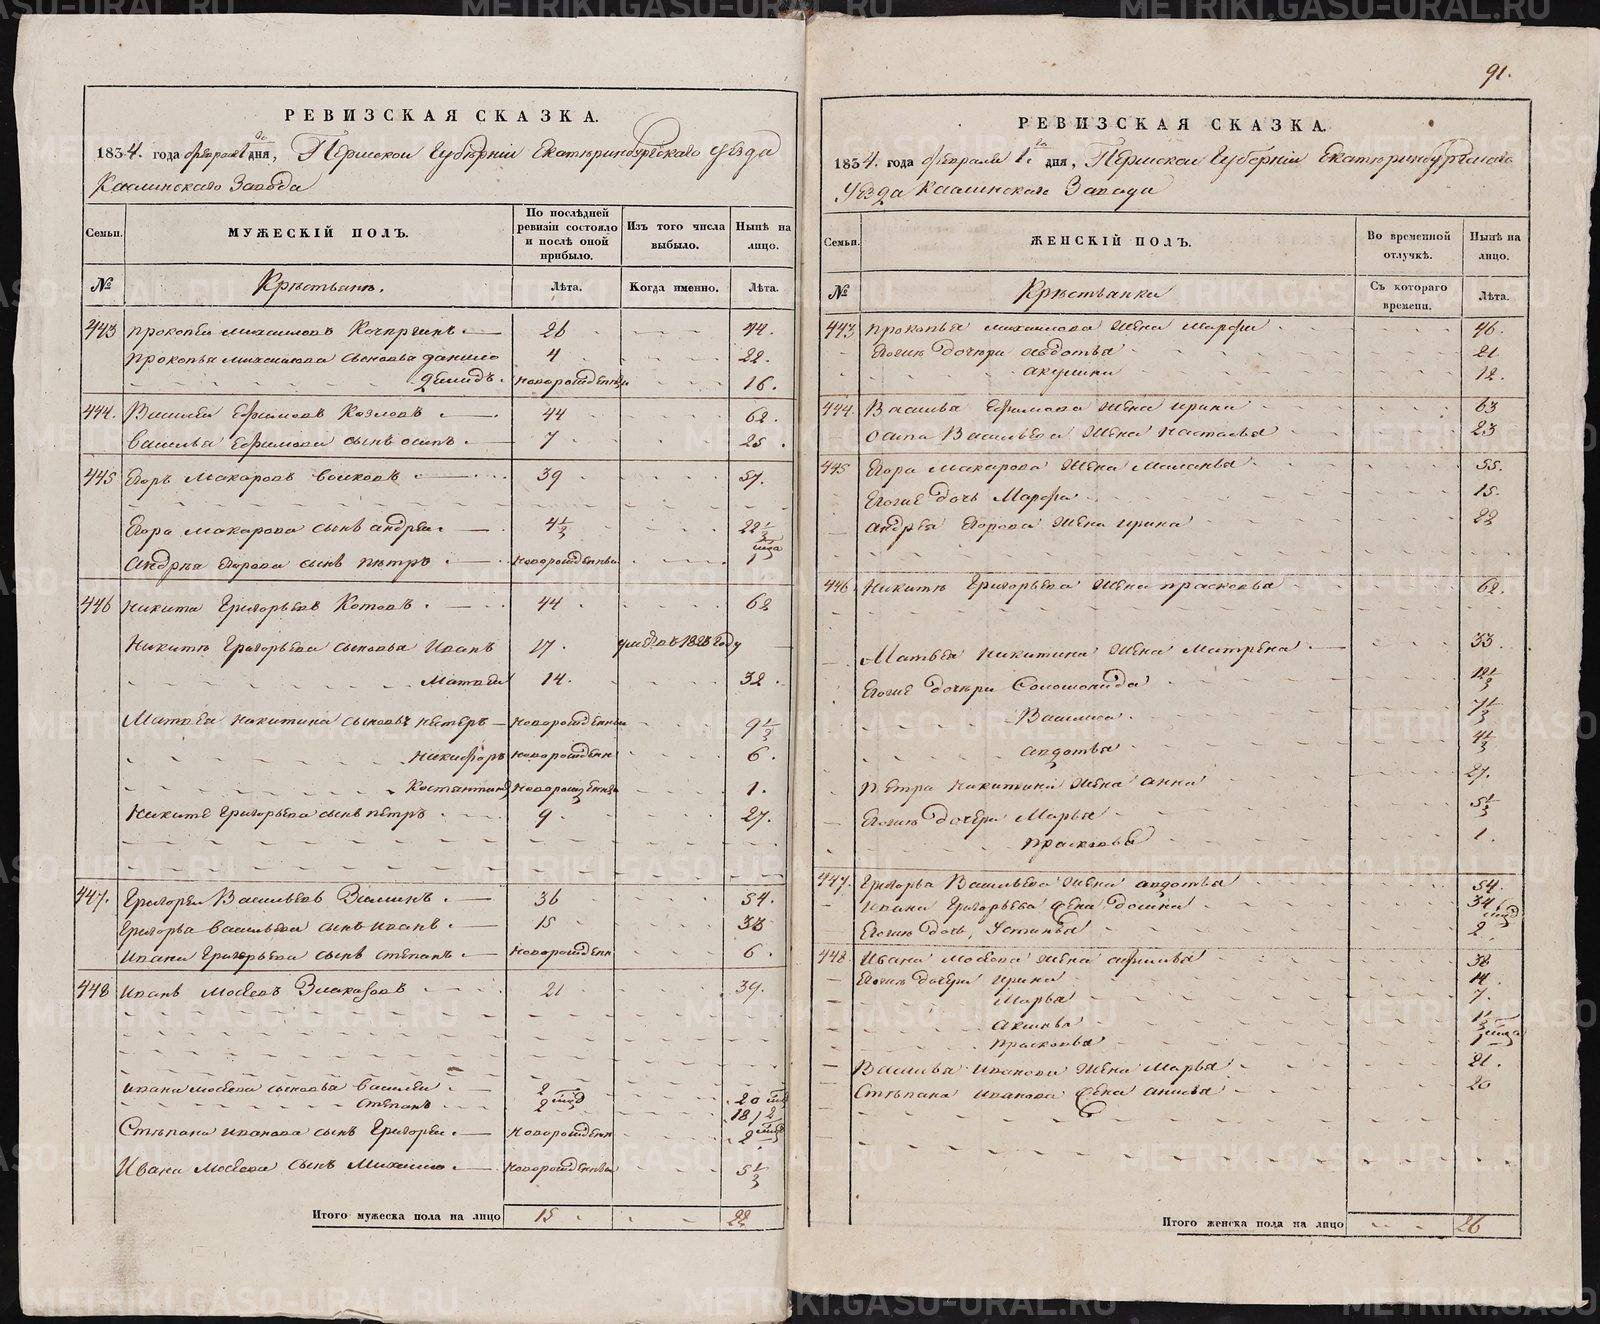 РЕВИЗСКАЯ СКАЗКА.
1834. года февраля 1го дня, Пермской Губерніи Екатеринбургскаго уезда
Каслинскаго Завода
Семьи.
МУЖЕСКІЙ ПОЛЪ.
По послѣдней ревизіи состояло и послѣ оной прибыло.
Изъ того числа выбыло.
Нынѣ на лицо.
№
Крестьяне.
Лѣта.
Когда именно.
Лѣта.
443 Прокопей Михаиловъ 26 44.
Прокопья Михаилова сыновья Данило 4 22.
Демидъ. новорожденны 16.
444. Василей Ефимовъ Козловъ 44 62.
Василья Ефимова сынъ Осипъ 7 25.
445 Егоръ Макаровъ Волковъ 39 57.
Егора Макарова сынъ Андрей 4½ 22½
Андрея Егорова сынъ Петръ новорожденны 1 мца
446 Никита Григорьевъ Котовъ 44 62
Никиты Григорьева сыновья Иванъ 17. 1828 году
Матвей 14. 32.
Матвея Никитина сыновья Нестеръ новорожденны 9½
Никифоръ новорожденн 6.
Костантинъ новорожденны 1.
Никиты Григорьева сынъ Петръ 9. 27.
447. Григорей Васильевъ Зиминъ 36 54.
Григорья Васильева сынъ Иванъ 15 33
Ивана Григорьева сынъ Степанъ новорожденн 6.
448 Иванъ Мосеевъ Злоказовъ 21 39.
Ивана Мосеева сыновья Василей 2 20
Степанъ 2 мцд 18
Степана Иванова сынъ Григорей новорожденн 2
Ивана Мосеева сынъ Михаило новорожденны 5½
Итого мужеска пола на лицо 15 22
91.
РЕВИЗСКАЯ СКАЗКА.
1834. года февраля 1го дня, Пермской Губерніи Екатеринбургскаго
Уезда Каслинскаго Завода
Семьи.
ЖЕНСКІЙ ПОЛЪ.
Во временной отлучкѣ.
Нынѣ на лицо.
№
Крестьянки
Съ котораго времени.
Лѣта.
443 Прокопья Михаилова жена Марфа 46.
Егоже дочери Авдотья 21
Акулина 12.
444. Василья Ефимова жена Ирина 63
Осипа Васильева жена Наталья 23
445 Егора Макарова жена Маланья 55.
Егоже дочь Марфа 15.
Андрея Егорова жена Ирина 22
446. Никиты Григорьева жена Прасковья 62.
Матвея Никитина жена Матрена 33.
Егоже дочери Соломонида 12½
Василиса 7½
Авдотья 4½
Петра Никитина жена Анна 27.
Егоже дочери Марья 5½
Прасковья 1.
447. Григорья Васильева жена Авдотья 54.
Ивана Григорьева жена Домна 34
Егоже дочь, Устинья 2
448 Ивана Мосеева жена Афимья 38
Егоже дочери Ирина 14.
Марья 7.
Аксинья 1½
Прасковья 1 мца
Василья Иванова жена Марья 21.
Степана Иванова жена Анисья 20
Итого женска пола на лицо 26
METRIKI.GASO-URAL.RU